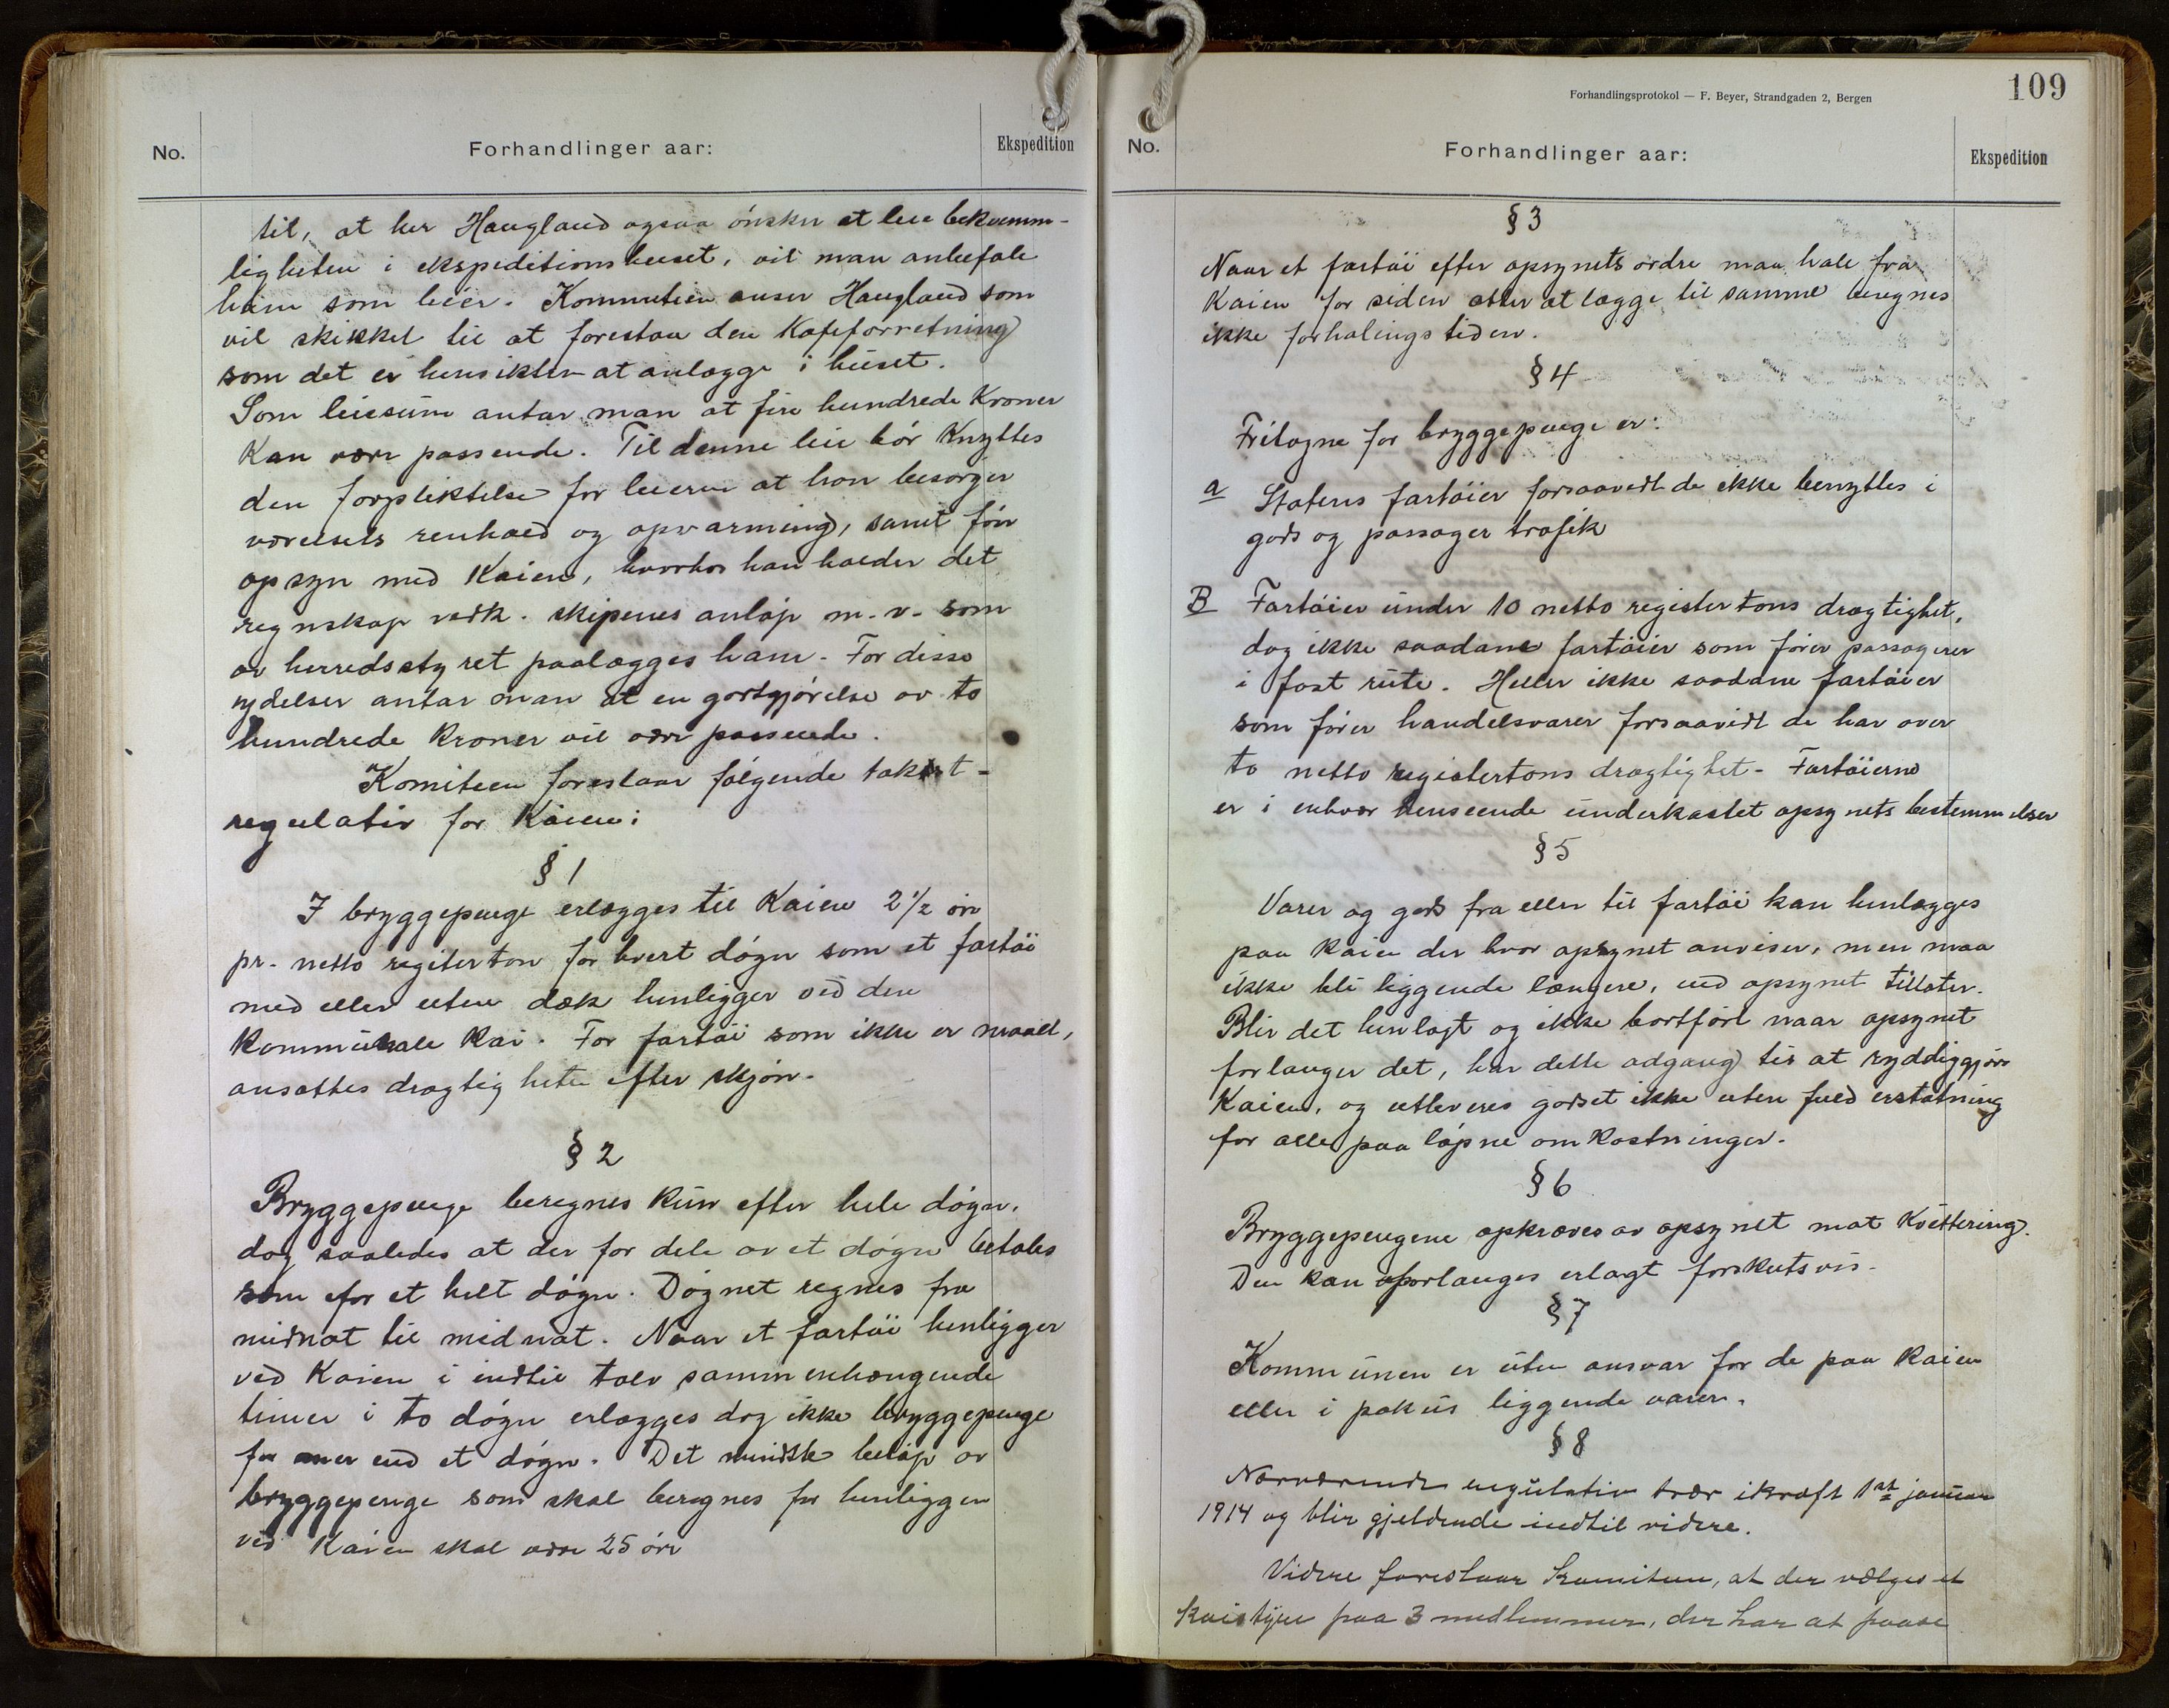 No.
Forhandlinger aar:
Ekspedition
til, at her Haugland ogsaa ønsker at leie bekvemm-
ligheten i ekspeditionshuset, vil man anbefale
ham som leier. Kommiteen anser Haugland som
vil skikket til at forestaa den Kafeforretning
som det er hensikten at anlægge i huset.
Som leiesum antar man at fire hundrede Kroner
Kan være passende. Til denne leie bør Knyttes
den forpliktelse for leieren at han besørger
værelsets renhold og opvarming, samt fører
opsyn med Kaien, hvorhos han holder det
regnskap vedk. skipenes anløp m.v. som
av herredsstyret paalægges ham. For disse
ydelser antar man at en godtgjørelse av to
hundrede Kroner vil være passende.
Komiteen foreslaar følgende takst-
regulativ for Kaien:
§ 1
I bryggepenge erlægges til Kaien 2 1/2 øre
pr. netto registerton for hvert døgn som et fartøi
med eller uten dæk henligger ved den
Kommunale Kai. For fartøi som ikke er maalt,
ansættes drægtigheten efter skjøn.
§ 2
Bryggepenge beregnes Kun efter hele døgn,
dog saaledes at der for dele av et døgn betales
som for et helt døgn. Døgnet regnes fra
midnat til midnat. Naar et fartøi henligger
ved Kaien i indtil tolv sammenhængende
timer i to døgn erlægges dog ikke bryggepenge
for mer end et døgn. Det mindste beløp av
bryggepenge som skal beregnes for henliggen
ved Kaien skal være 25 øre
Forhandlingsprotokol — F. Beyer, Strandgaden 2, Bergen
109
No.
Forhandlinger aar:
Ekspedition
§ 3
Naar et fartøi efter opsynets ordre maa hale fra
Kaien for siden atter at lægge til samme beregnes
ikke forhalingstiden.
§ 4
Fritagne for bryggepenge er:
a Statens fartøier forsaavidt de ikke benyttes i
gods og passager trafik
B Fartøier under 10 netto registertons drægtighet,
dog ikke saadane fartøier som fører passagerer
i fast rute. Heller ikke saadane fartøier
som fører handelsvarer forsaavidt de har over
to netto registertons drægtighet. Fartøierne
er i enhver henseende underkastet opsynets bestemmelser
§ 5
Varer og gods fra eller til fartøi kan henlægges
paa Kaien der hvor opsynet anviser, men maa
ikke bli liggende længere, end opsynet tillater.
Blir det henlagt og ikke bortført naar opsynet
forlanger det, har dette adgang til at ryddiggjøre
Kaien, og utleveres godset ikke uten fuld erstatning
for alle paaløpne omkostninger.
§ 6
Bryggepengene opkræves av opsynet mot Kvittering.
Den kan forlanges erlagt forskutsvis.
§ 7
Kommunen er uten ansvar for de paa Kaien
eller i pakus liggende varer.
§ 8
Nærværende regulativ trær ikraft 1st januar
1914 og blir gjeldende indtil videre.
Videre foreslaar Komiteen, at der vælges et
Kaistyre paa 3 medlemmer, der har at paase